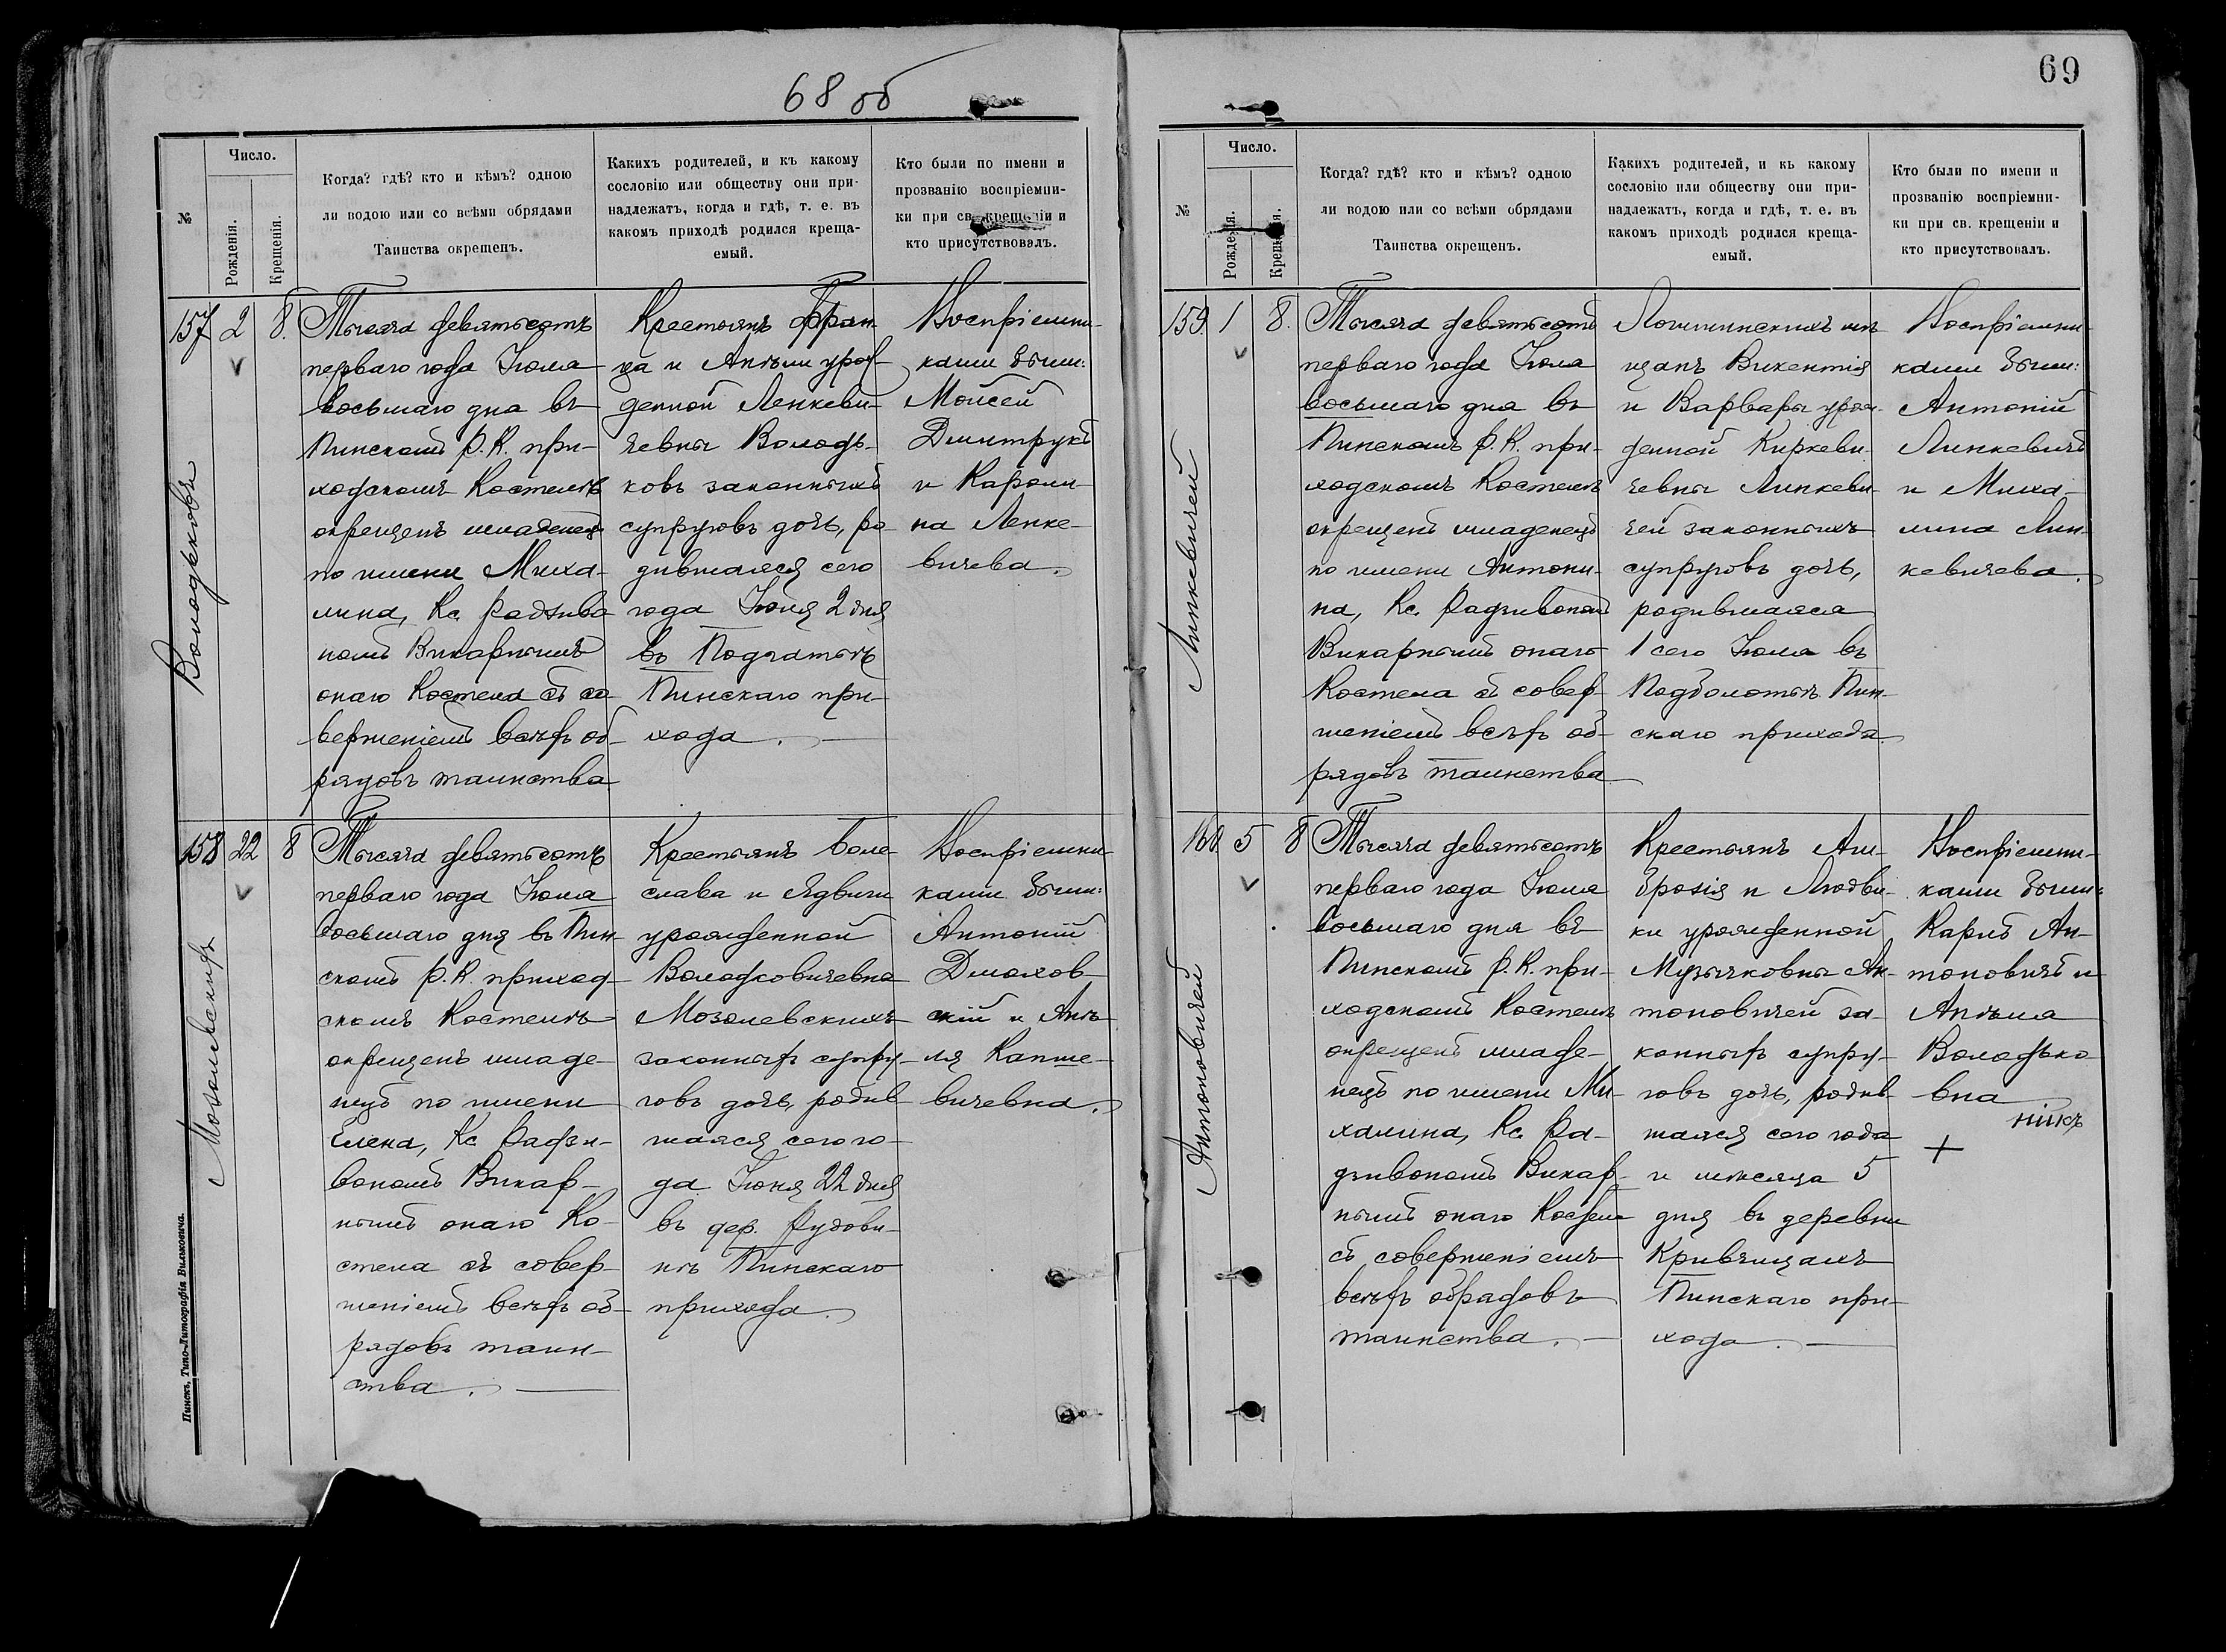 68 об
№
Число.
Рожденія.
Крещенія.
Когда? гдѣ? кто и кѣмъ? одною
ли водою или со всѣми обрядами
Таинства окрещенъ.
Какихъ родителей, и къ какому
сословію или обществу они при-
надлежатъ, когда и гдѣ, т. е. въ
какомъ приходѣ родился креща-
емый.
Кто были по имени и
прозванію воспріемни-
ки при св. крещеніи и
кто присутствовалъ.
157
2
8.
Володьковъ
Тысяча девятьсотъ
перваго года Іюля
восьмаго дня въ
Пинскомъ Р. К. при-
ходскомъ Костелѣ
окрещенъ младенецъ
по имени Миха-
лина, Кс. Радзиво
номъ Викарнымъ
онаго Костела съ со-
вершеніемъ всѣхъ об-
рядовъ таинства
Крестьянъ Фран
ца и Анѣли урож-
денной Ленкеви-
чевны Володь-
ковъ законныхъ
супруговъ дочь, ро
дившаяся сего
года Іюля 2 дня
въ Подгатьѣ
Пинскаго при-
хода.
Воспріемни-
ками были:
Мойсей
Дмитрукъ
и Кароли-
на Ленке-
вичева.
158
22
8
Мозолевскихъ
Тысяча девятьсотъ
перваго года Іюля
восьмаго дня въ Пин-
скомъ Р. К. приход-
скомъ Костелѣ
окрещенъ младе-
нецъ по имени
Елена, Кс. Радзи-
вономъ Викар-
нымъ онаго Ко-
стела съ совер-
шеніемъ всѣхъ об-
рядовъ таин-
ства.
Крестьянъ Боле-
слава и Ядвиги
урожденной
Володковичевна
Мозолевскихъ
законныхъ супру-
говъ дочь, родив-
шаяся сего го-
да Іюня 22 дня
въ дер. Рудови-
нѣ Пинскаго
прихода.
Воспріемни-
ками были:
Антоній
Дмохов-
скій и Анѣ-
ля Капше-
вичевна.
Пинскъ, Типо-Литографія Вильковича.
69
№
Число.
Рожденія.
Крещенія.
Когда? гдѣ? кто и кѣмъ? одною
ли водою или со всѣми обрядами
Таинства окрещенъ.
Какихъ родителей, и къ какому
сословію или обществу они при-
надлежатъ, когда и гдѣ, т. е. въ
какомъ приходѣ родился креща-
емый.
Кто были по имени и
прозванію воспріемни-
ки при св. крещеніи и
кто присутствовалъ.
159
1
8.
Линкевичей
Тысяча девятьсотъ
перваго года Іюля
восьмаго дня въ
Пинскомъ Р. К. при-
ходскомъ Костелѣ
окрещенъ младенецъ
по имени Антони-
на, Кс. Радзивономъ
Викарнымъ онаго
Костела съ совер-
шеніемъ всѣхъ об-
рядовъ таинства
Логишинскихъ мѣ
щанъ Викентія
и Варвары урож-
денной Киркеви-
чевны Линкеви-
чей законныхъ
супруговъ дочь,
родившаяся
1 сего Іюля въ
Подболотьѣ Пин-
скаго прихода.
Воспріемни-
ками были:
Антоній
Линкевичъ
и Миха-
лина Лин-
кевичева.
160
5
8
Антоновичей
Тысяча девятьсотъ
перваго года Іюля
восьмаго дня въ
Пинскомъ Р. К. при-
ходскомъ Костелѣ
окрещенъ младе-
нецъ по имени Ми-
халина, Кс. Ра-
дзивономъ Викар-
нымъ онаго Костела
съ совершеніемъ
всѣхъ обрядовъ
таинства.
Крестьянъ Ам-
брозія и Людви-
ки урожденной
Музычковны Ан-
тоновичей за-
конныхъ супру-
говъ дочь, родив-
шаяся сего года
и мѣсяца 5
дня въ деревни
Кривчицахъ
Пинскаго при-
хода.
Воспріемни-
ками были:
Карлъ Ан-
тоновичъ и
Анѣля
Володько-
вна
+